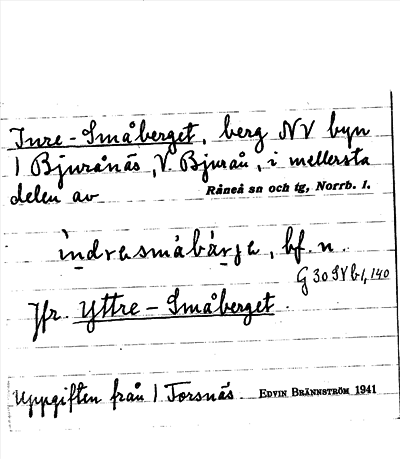 Inre-Småberget, berg NV byn
1 Bjurånäs, V. Bjurån, i mellersta
delen av Råneå sn och tg, Norrb. l.
ìndrasmåbärja, bf. n.
G 30 SV b1, 140
Jfr. Yttre-Småberget.
Uppgiften från 1 Torsnäs. EDVIN BRÄNNSTRÖM 1941